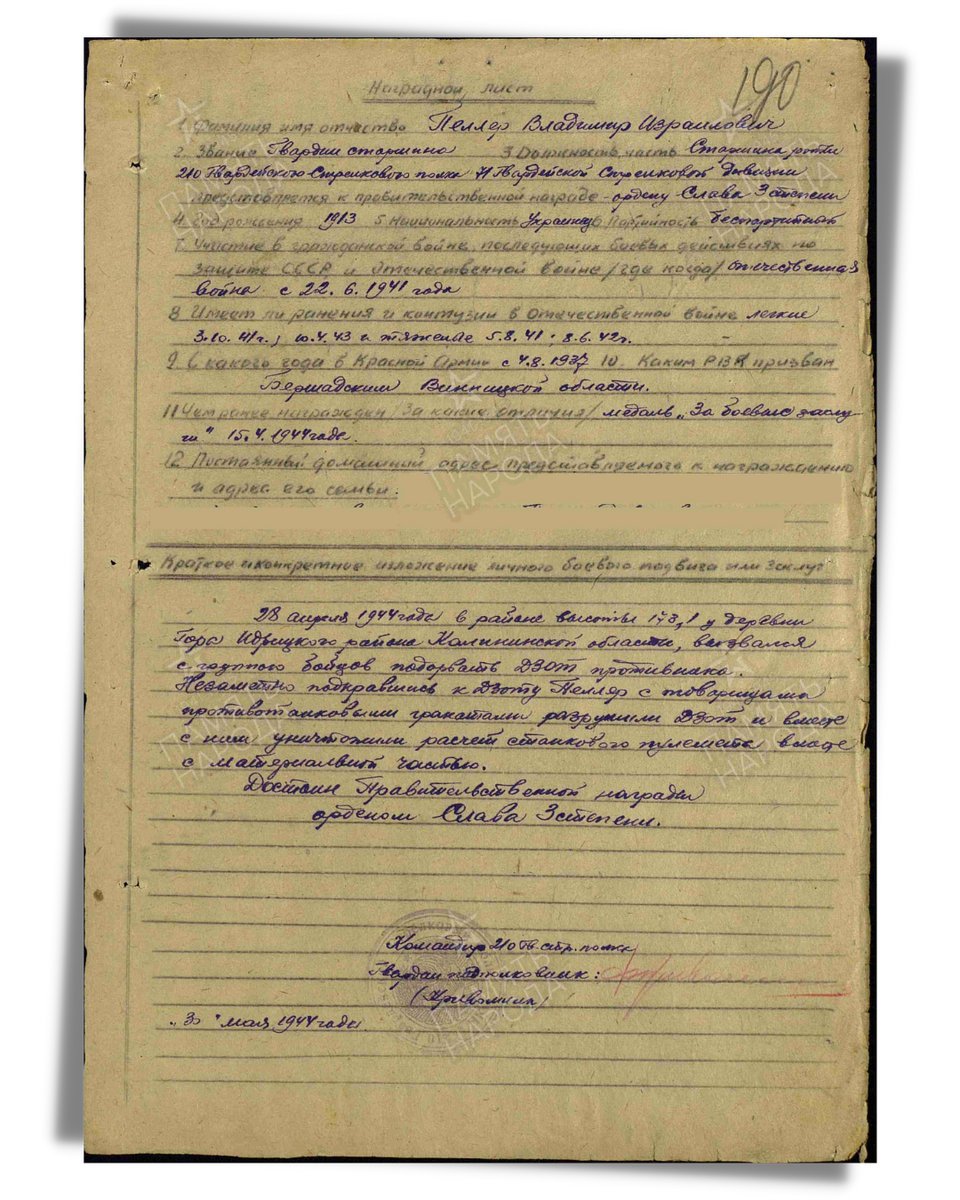 190
Наградной лист
1. Фамилия имя отчество Пеллер Владимир Израилович
2. Звание Гвардии старшина 3. Должность, часть Старшина роты
210 Гвардейского Стрелкового полка 71 Гвардейской Стрелковой дивизии
представляется к правительственной награде - ордену Слава 3 степени
4. Год рождения 1913 5. Национальность Украинец 6. Партийность беспартийный
7. Участие в гражданской войне, последующих боевых действиях по
защите СССР и отечественной войне /где когда/ отечественная
война с 22.6.1941 года
8. Имеет ли ранения и контузии в отечественной войне легкие
3.10.41г.; 10.4.43 и тяжелые 5.8.41; 8.6.42г.
9. С какого года в Красной Армии с 4.8.1937 10. Каким РВК призван
Бершадским Винницкой области.
11. Чем ранее награжден /За какие отличия/ медаль „За боевые заслу
ги" 15.4.1944 года.
12. Постоянный домашний адрес представляемого к награждению
и адрес его семьи:
Краткое и конкретное изложение личного боевого подвига или заслуг
28 апреля 1944 года в районе высоты 173,1 у деревни
Гора Идрицкого района Калининской области, вызвался
с группою бойцов подорвать ДЗОТ противника.
Незаметно подкравшись к Дзоту Пеллер с товарищами
противотанковыми гранатами разрушили ДЗОТ и вместе
с ним уничтожили расчет станкового пулемета вместе
с материальной частью.
Достоин Правительственной награды
орденом Слава 3 степени.
Командир 210 Гв. стр. полка
Гвардии подполковник:
„30" мая 1944 года
ПАМЯТЬ НАРОДА